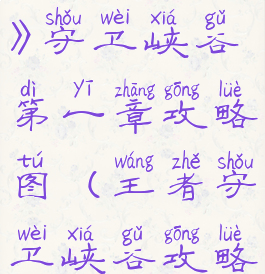 shǒu wèi xiá gǔ
》守卫峡谷
dì yī zhāng gōng lüè
第一章攻略
tú wáng zhě shǒu
图（王者守
wèi xiá gǔ gōng lüè
卫峡谷攻略